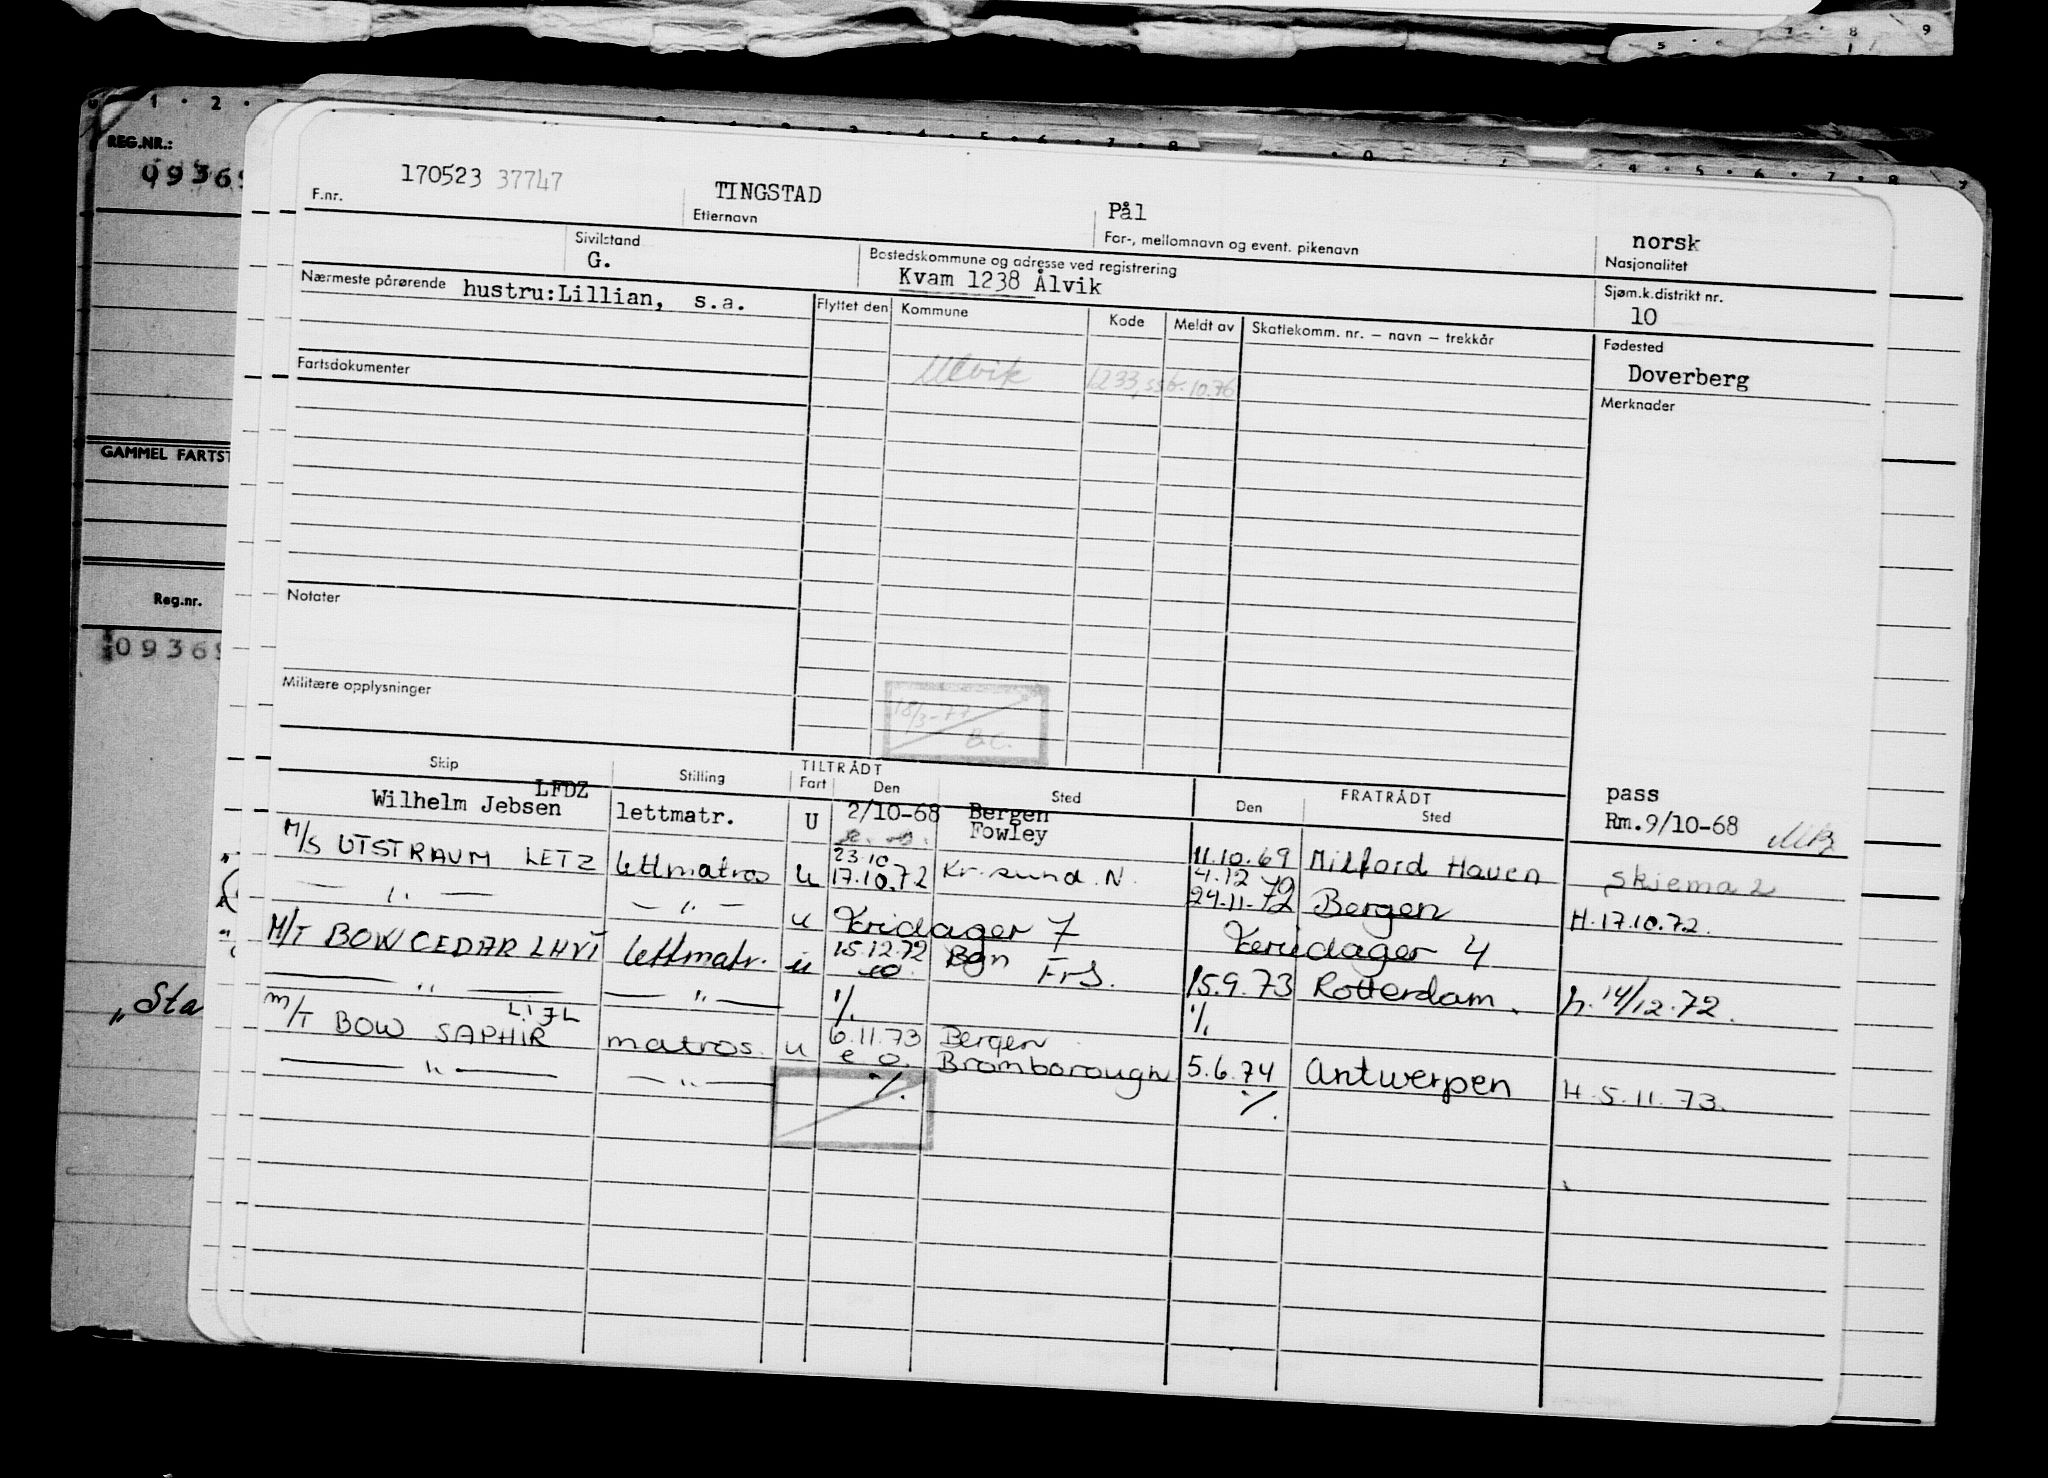 REG.NR.:
0936
GAMMEL FARTST
Reg.nr.
0936
„Sta
170523 37747
F.nr.
TINGSTAD
Etternavn
Pål
For-, mellomnavn og event. pikenavn
norsk
Nasjonalitet
Sivilstand
G.
Bostedskommune og adresse ved registrering
Kvam 1238 Ålvik
Sjøm.k.distrikt nr.
10
Nærmeste pårørende hustru:Lillian, s.a.
Flyttet den Kommune Kode Meldt av Skattekomm. nr. – navn – trekkår
Ulvik 1233, ssb. 10.76
Fødested
Doverberg
Fartsdokumenter
Merknader
Notater
Militære opplysninger
18/3-77
Skip Stilling TILTRÅDT Fart Den Sted FRATRÅDT Den Sted
Wilhelm Jebsen LFDZ lettmatr. U 2/10-68 Bergen
Fowley
11.10.69 Milford Haven
pass
Rm.9/10-68
M/S UTSTRAUM LETZ lettmatros u 23.10
17.10.72 Kr.sund.N. 4.12
24-11-72 Bergen
skjema 2
H.17.10.72.
— „ — — „ — u Feridager 7 Feriedager 4
M/T BOW CEDAR LHVI lettmatr. u 15.12.72 Bgn FrS. 15.9.73 Rotterdam. h.14/12.72.
— „ — — „ — ./. ./.
M/T BOW SAPHIR LIJL matros. u 6.11.73 Bergen
e o. Bromborough 5.6.74 Antwerpen H.5.11.73.
— „ — — „ — ./. ./.